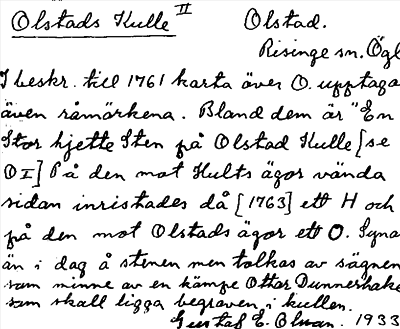 Olstads Kulle II Olstad.
Risinge sn. Ögl
I beskr. till 1761 karta över O. upptaga
även råmärkena. Bland dem är "En
Stor hjette Sten på Olstad Kulle [se
O I] På den mot Hults ägor vända
sidan inristades då [1763] ett H och
på den mot Olstads ägor ett O. Syna
än i dag å stenen men tolkas av sägnen
som minne av en kämpe Ottar Dunnerhake
som skall ligga begraven i kullen.
Gustaf E. Olson. 1933